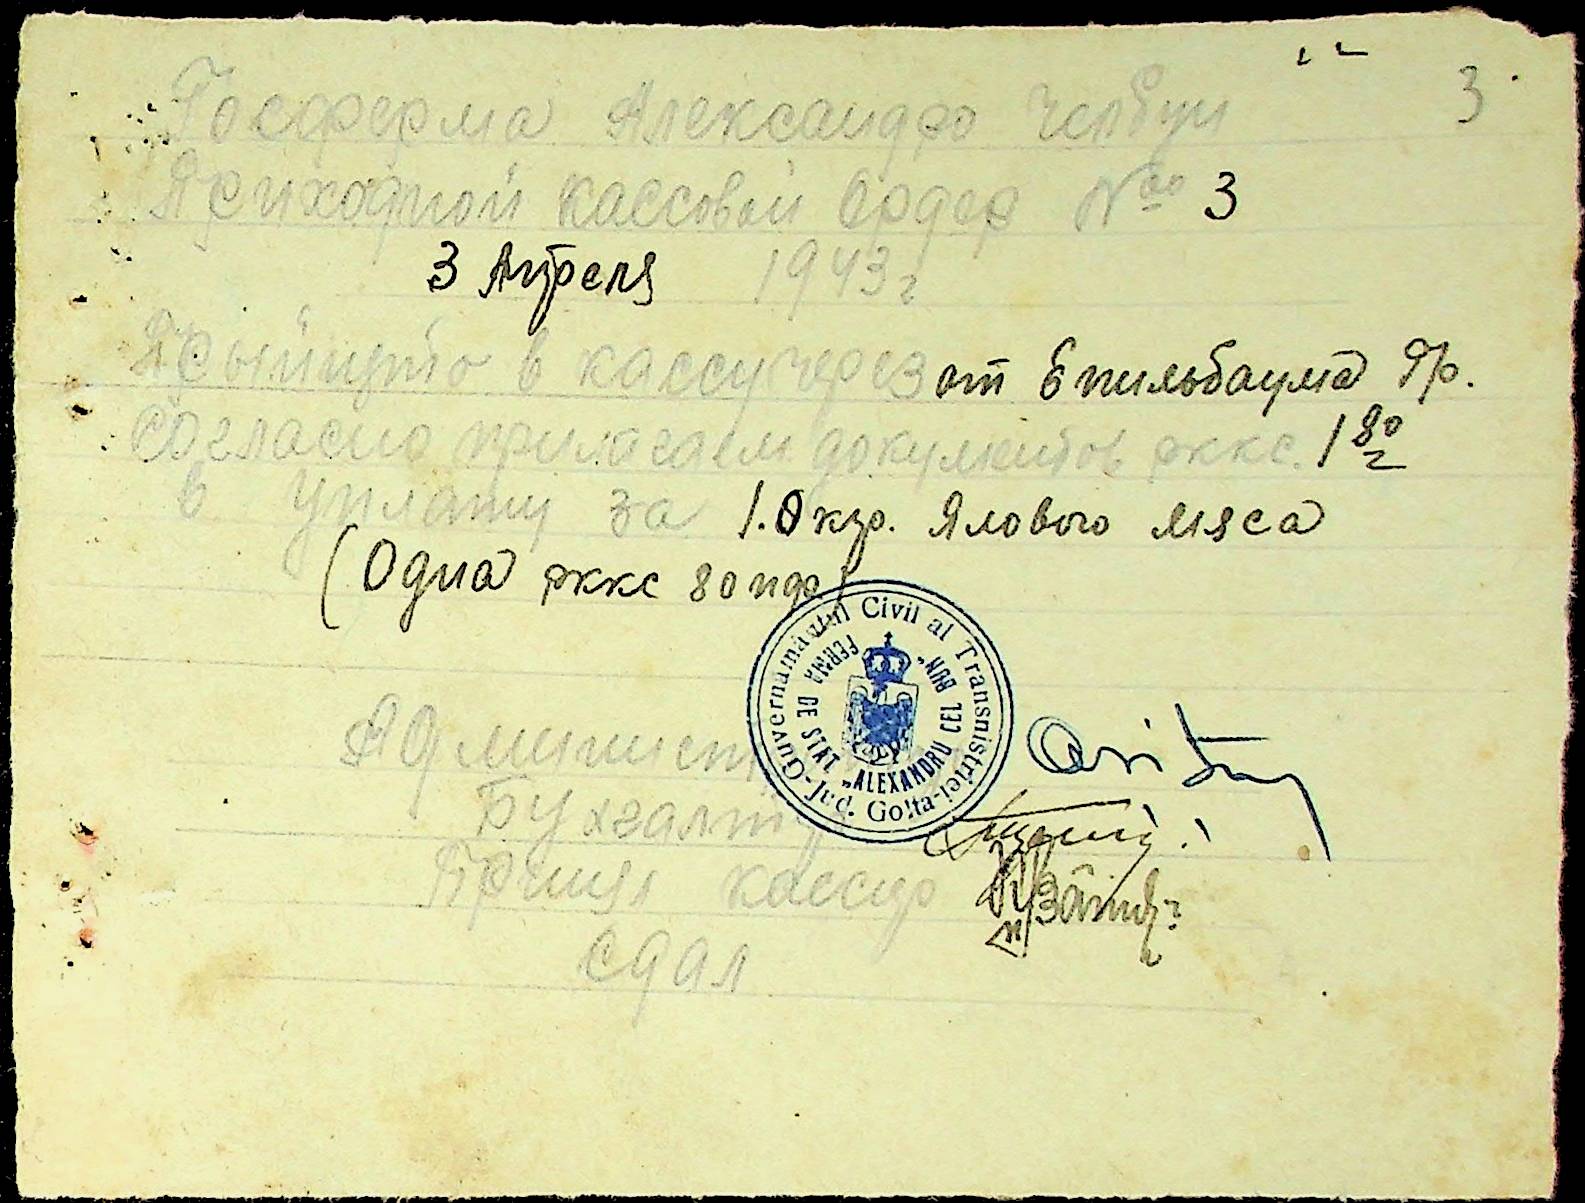 3
Госферма Александро Челбун
Приходной кассовой Ордер № 3
3 Апреля 1943 г
Прыйнуто в кассу через от Епильбаума Яр.
согласно прилагаем документов рккс. 1 80
в уплату за 1.0 кгр. Ялового мяса
(Одна рккс 80 пф)
Guvernământul Civil al Transnistriei-Jud. Golta-
FERMA DE STAT „ALEXANDRU CEL BUN”
Админист
Бухгалтер
Принял кассир
сдал